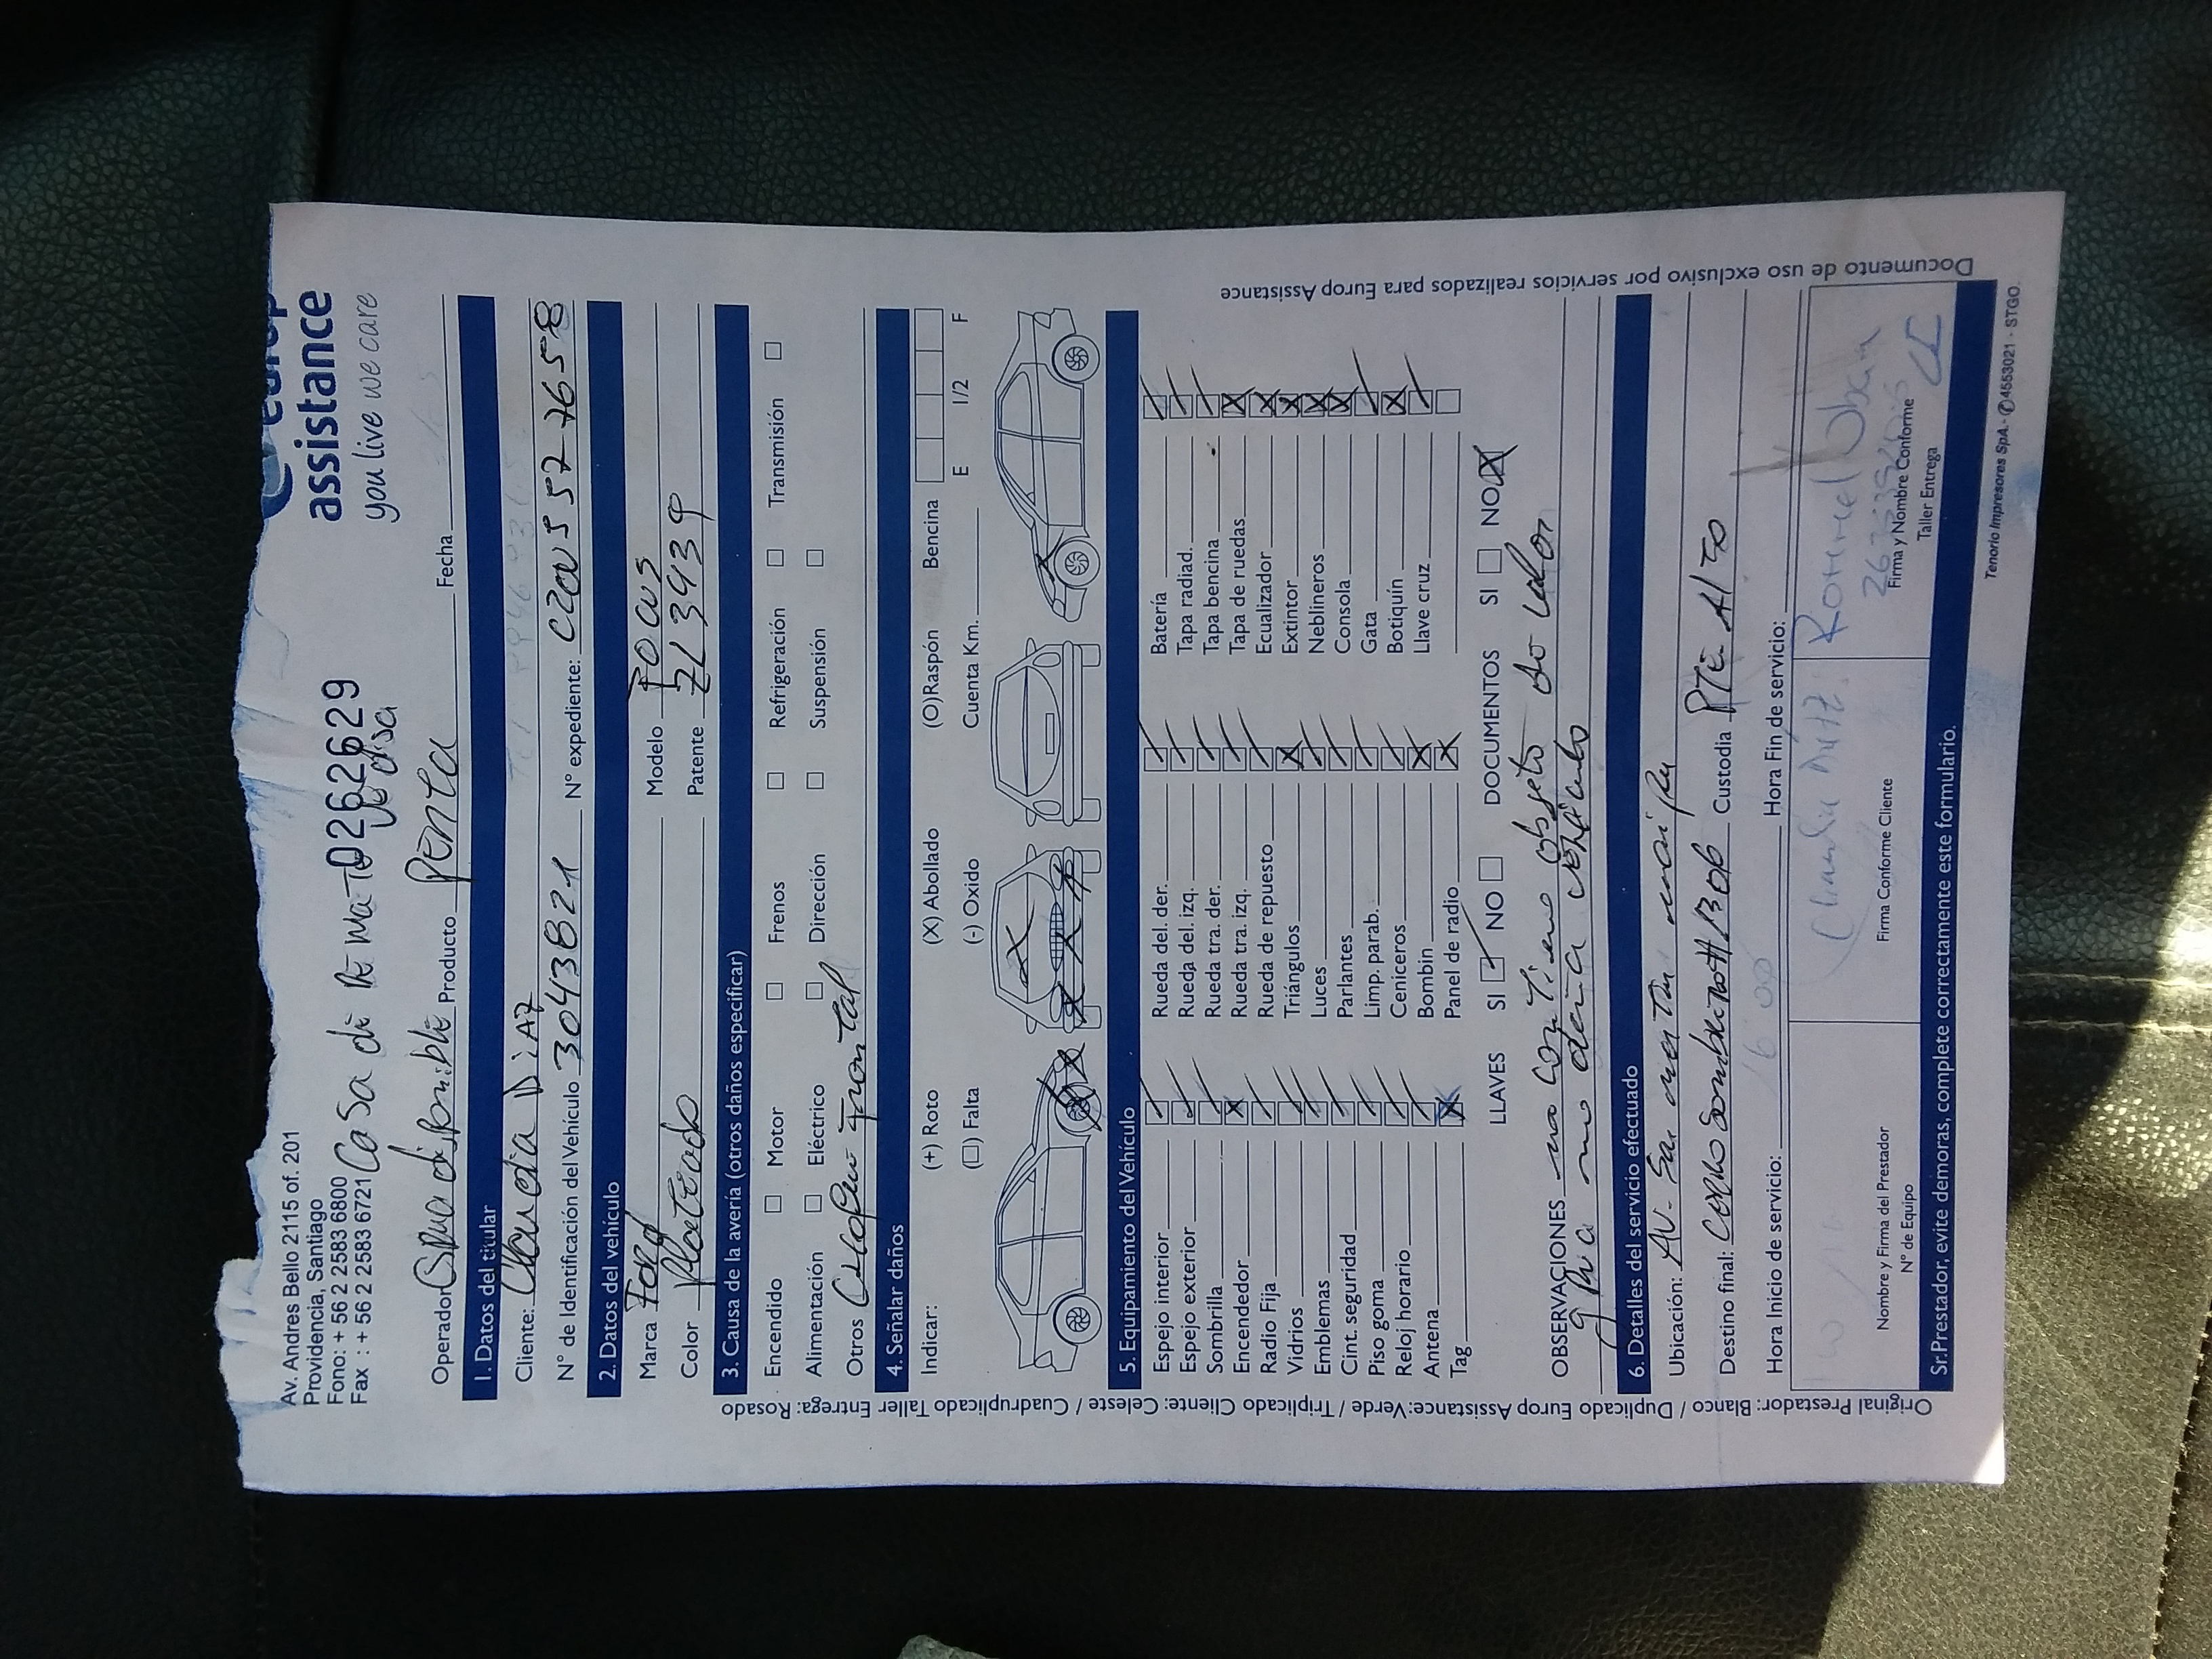 assistance
you live we care
Av. Andres Bello 2115 of. 201
Providencia, Santiago
Fono: + 56 2 2583 6800
Fax : + 56 2 2583 6721
Casa de Remate
0262629
Operador Grua disponible Producto Penta Fecha
1. Datos del titular
Cliente: Claudia Diaz
N° de Identificación del Vehículo 3043821 N° expediente:
2. Datos del vehículo
Marca Ford Modelo Focus
Color Plateado Patente ZL3439
3. Causa de la avería (otros daños especificar)
Encendido Motor Frenos Refrigeración Transmisión
Alimentación Eléctrico Dirección Suspensión
Otros Choque Frontal
4. Señalar daños
Indicar: (+) Roto (X) Abollado (O)Raspón Bencina
(□) Falta (-) Oxido Cuenta Km. E 1/2 F
5. Equipamiento del Vehículo
Espejo interior Rueda del. der. Batería
Espejo exterior Rueda del. izq. Tapa radiad.
Sombrilla Rueda tra. der. Tapa bencina
Encendedor Rueda tra. izq. Tapa de ruedas
Radio Fija Rueda de repuesto Ecualizador
Vidrios Triángulos Extintor
Emblemas Luces Neblineros
Cint. seguridad Parlantes Consola
Piso goma Limp. parab. Gata
Reloj horario Ceniceros Botiquín
Antena Bombin Llave cruz
Tag Panel de radio
LLAVES SI NO DOCUMENTOS SI NO
OBSERVACIONES no contiene objeto de valor
grua no deja vehiculo
6. Detalles del servicio efectuado
Ubicación: AV. San martin
Destino final: Custodia Pte Alto
Hora Inicio de servicio: Hora Fin de servicio:
Claudia Diaz
Nombre y Firma del Prestador
N° de Equipo
Firma Conforme Cliente
Firma y Nombre Conforme
Taller Entrega
Sr. Prestador, evite demoras, complete correctamente este formulario.
Tenorio Impresores SpA. - ✆ 4553021 - STGO.
Original Prestador: Blanco / Duplicado Europ Assistance: Verde / Triplicado Cliente: Celeste / Cuadruplicado Taller Entrega: Rosado
Documento de uso exclusivo por servicios realizados para Europ Assistance